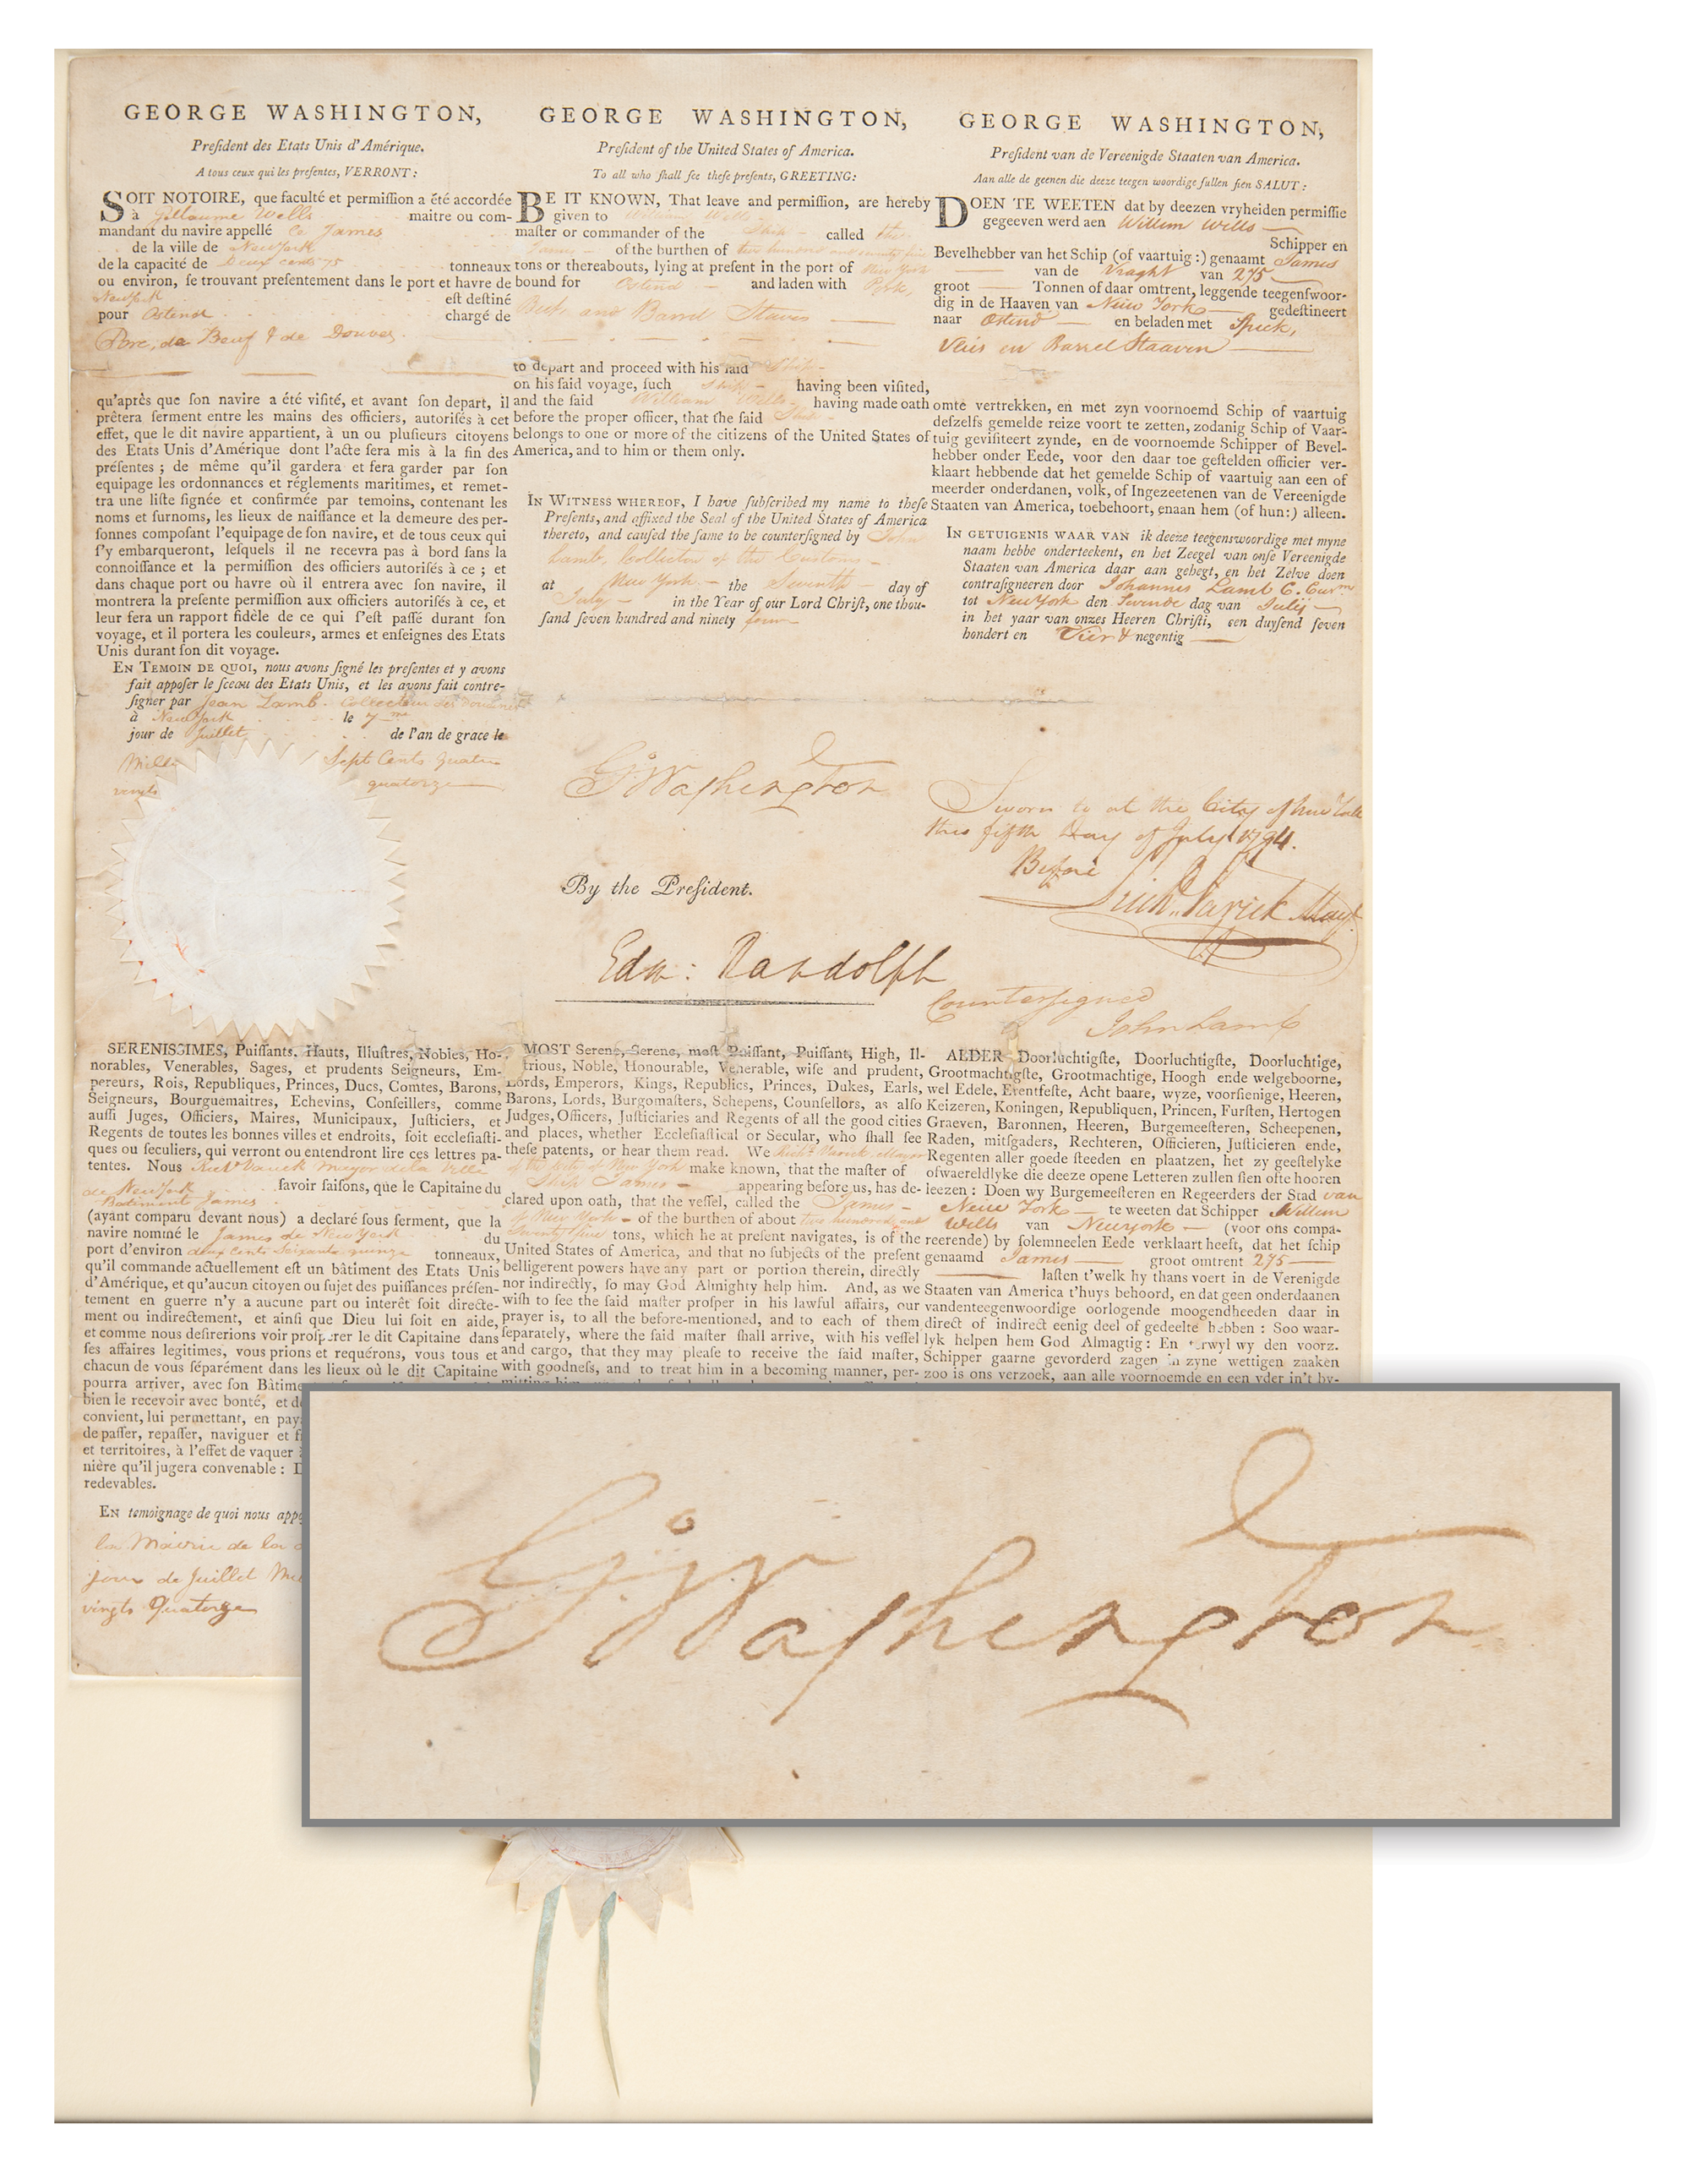 GEORGE WASHINGTON,
Preſident des Etats Unis d'Amérique.
A tous ceux qui les preſentes, VERRONT:
SOIT NOTOIRE, que faculté et permiſſion a été accordée
à Guillaume Wells maitre ou com-
mandant du navire appellé Le James
de la ville de NewYork
de la capacité de Deux cents 75 tonneaux
ou environ, ſe trouvant preſentement dans le port et havre de
NewYork eſt deſtiné
pour Ostend chargé de
Porc, de Beuf & de Douves
qu'après que ſon navire a été viſité, et avant ſon depart, il
prêtera ſerment entre les mains des officiers, autoriſés à cet
effet, que le dit navire appartient, à un ou pluſieurs citoyens
des Etats Unis d'Amérique dont l'acte ſera mis à la fin des
préſentes; de même qu'il gardera et fera garder par ſon
equipage les ordonnances et réglements maritimes, et remet-
tra une liſte ſignée et confirmée par temoins, contenant les
noms et ſurnoms, les lieux de naiſſance et la demeure des per-
ſonnes compoſant l'equipage de ſon navire, et de tous ceux qui
ſ'y embarqueront, leſquels il ne recevra pas à bord ſans la
connoiſſance et la permiſſion des officiers autoriſés à ce; et
dans chaque port ou havre où il entrera avec ſon navire, il
montrera la preſente permiſſion aux officiers autoriſés à ce, et
leur fera un rapport fidèle de ce qui ſ'eſt paſſé durant ſon
voyage, et il portera les couleurs, armes et enſeignes des Etats
Unis durant ſon dit voyage.
EN TEMOIN DE QUOI, nous avons ſigné les preſentes et y avons
fait appoſer le ſceau des Etats Unis, et les avons fait contre-
ſigner par Jean Lamb. Collecteur des Douanes
à NewYork le 7me
jour de Juillet de l'an de grace le
Mille Sept Cents Quatre
vingts quatorze
GEORGE WASHINGTON,
Preſident of the United States of America.
To all who ſhall ſee theſe preſents, GREETING:
BE IT KNOWN, That leave and permiſſion, are hereby
given to William Wells
maſter or commander of the Ship called the
James of the burthen of two hundred and seventy five
tons or thereabouts, lying at preſent in the port of New York
bound for Ostend and laden with Pork,
Beef, and Barrel Staves
to depart and proceed with his ſaid Ship
on his ſaid voyage, ſuch Ship having been viſited,
and the ſaid William Wells having made oath
before the proper officer, that the ſaid Ship
belongs to one or more of the citizens of the United States of
America, and to him or them only.
IN WITNESS WHEREOF, I have ſubſcribed my name to theſe
Preſents, and affixed the Seal of the United States of America
thereto, and cauſed the ſame to be counterſigned by John
Lamb, Collector of the Customs
at New York the Seventh day of
July in the Year of our Lord Chriſt, one thou-
ſand ſeven hundred and ninety four
GEORGE WASHINGTON,
Preſident van de Vereenigde Staaten van America.
Aan alle de geenen die deeze teegen woordige ſullen ſien SALUT:
DOEN TE WEETEN dat by deezen vryheiden permiſſie
gegeeven werd aen Willem Wells
Schipper en
Bevelhebber van het Schip (of vaartuig:) genaamt James
van de Vraght van 275
groot Tonnen of daar omtrent, leggende teegenſwoor-
dig in de Haaven van Neiw York gedeſtineert
naar Ostend en beladen met Speck,
Vleis en Barrel Staaven
omte vertrekken, en met zyn voornoemd Schip of vaartuig
deſzelfs gemelde reize voort te zetten, zodanig Schip of Vaar-
tuig geviſiteert zynde, en de voornoemde Schipper of Bevel-
hebber onder Eede, voor den daar toe geſtelden officier ver-
klaart hebbende dat het gemelde Schip of vaartuig aan een of
meerder onderdanen, volk, of Ingezeetenen van de Vereenigde
Staaten van America, toebehoort, enaan hem (of hun:) alleen.
IN GETUIGENIS WAAR VAN ik deeze teegenswoordige met myne
naam hebbe onderteekent, en het Zeegel van onſe Vereenigde
Staaten van America daar aan gehegt, en het Zelve doen
contraſigneeren door Johannes Lamb C.
tot NewYork den Sevende dag van Julij
in het yaar van onzes Heeren Chriſti, een duyſend ſeven
hondert en Vier & negentig
G:Waſhington
Sworn to at the City of New York
this fifth Day of July 1794.
Before
Rich. Varick May.r
By the Preſident.
Edm: Randolph
Counterſigned
John Lamb
SERENISSIMES, Puiſſants. Hauts, Illuſtres, Nobles, Ho-
norables, Venerables, Sages, et prudents Seigneurs, Em-
pereurs, Rois, Republiques, Princes, Ducs, Comtes, Barons,
Seigneurs, Bourguemaitres, Echevins, Conſeillers, comme
auſſi Juges, Officiers, Maires, Municipaux, Juſticiers, et
Regents de toutes les bonnes villes et endroits, ſoit eccleſiaſti-
ques ou ſeculiers, qui verront ou entendront lire ces lettres pa-
tentes. Nous Richd Varick Mayor de la Ville
de NewYork ſavoir faiſons, que le Capitaine du
Batiment James
(ayant comparu devant nous) a declaré ſous ferment, que la
navire nominé le James de NewYork du
port d'environ deux cents Soixante quinze tonneaux,
qu'il commande actuellement eſt un bâtiment des Etats Unis
d'Amérique, et qu'aucun citoyen ou ſujet des puiſſances préſen-
tement en guerre n'y a aucune part ou interêt ſoit directe-
ment ou indirectement, et ainſi que Dieu lui ſoit en aide,
et comme nous deſirerions voir proſperer le dit Capitaine dans
ſes affaires legitimes, vous prions et requérons, vous tous et
chacun de vous ſéparément dans les lieux où le dit Capitaine
pourra arriver, avec ſon Bâtime
bien le recevoir avec bonté, et d
convient, lui permettant, en pay
de paſſer, repaſſer, naviguer et f
et territoires, à l'effet de vaquer
nière qu'il jugera convenable: D
redevables.
EN temoignage de quoi nous appo
la Mairie de la
jour de Juillet
vingts Quatorze
MOST Serene, Serene, moſt Puiſſant, Puiſſant, High, Il-
trious, Noble, Honourable, Venerable, wiſe and prudent,
Lords, Emperors, Kings, Republics, Princes, Dukes, Earls,
Barons, Lords, Burgomaſters, Schepens, Counſellors, as alſo
Judges, Officers, Juſticiaries and Regents of all the good cities
and places, whether Eccleſiaſtical or Secular, who ſhall ſee
theſe patents, or hear them read. We Richd Varick, Mayor
of the City of New York make known, that the maſter of
Ship James appearing before us, has de-
clared upon oath, that the veſſel, called the James
of New York of the burthen of about two hundred and
Seventy five tons, which he at preſent navigates, is of the
United States of America, and that no ſubjects of the preſent
belligerent powers have any part or portion therein, directly
nor indirectly, ſo may God Almighty help him. And, as we
wiſh to ſee the ſaid maſter proſper in his lawful affairs, our
prayer is, to all the before-mentioned, and to each of them
ſeparately, where the ſaid maſter ſhall arrive, with his veſſel
and cargo, that they may pleaſe to receive the ſaid maſter,
with goodneſs, and to treat him in a becoming manner, per-
ALDER Doorluchtigſte, Doorluchtigſte, Doorluchtige,
Grootmachtigſte, Grootmachtige, Hoogh ende welgeboorne,
wel Edele, Erentfeſte, Acht baare, wyze, voorſienige, Heeren,
Keizeren, Koningen, Republiquen, Princen, Furſten, Hertogen
Graeven, Baronnen, Heeren, Burgemeeſteren, Scheepenen,
Raden, mitſgaders, Rechteren, Officieren, Juſticieren ende,
Regenten aller goede ſteeden en plaatzen, het zy geeſtelyke
ofwaereldlyke die deeze opene Letteren zullen ſien ofte hooren
leezen: Doen wy Burgemeeſteren en Regeerders der Stad van
Neiw York te weeten dat Schipper Willem
Wells van Newyork (voor ons compa-
reerende) by ſolemneelen Eede verklaart heeft, dat het ſchip
genaamd James groot omtrent 275
laſten t'welk hy thans voert in de Verenigde
Staaten van America t'huys behoord, en dat geen onderdaanen
vandenteegenwoordige oorlogende moogendheeden daar in
direct of indirect eenig deel of gedeelte hebben: Soo waar-
lyk helpen hem God Almagtig: En terwyl wy den voorz.
Schipper gaarne gevorderd zagen in zyne wettigen zaaken
zoo is ons verzoek, aan alle voornoemde en een yder in't by-
G:Waſhington